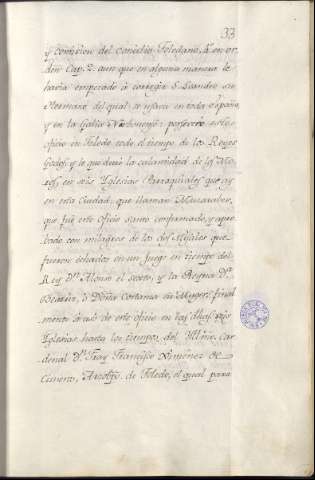 33
y comision del Concilio Toledano, 4º en or-
den Cap. 2. aunque en alguna manera le
havia empezado à corregir S. Leandro su
Hermano del qual, se usava en toda España,
y en la Galia Narbonense: persevero este
oficio en Toledo todo el tiempo de los Reyes
Godos, y lo que durò la calamidad de los Mo-
ros, en seis Yglesias Parroquiales que ay
en esta Ciudad, que llaman Muzarabes,
que fue este Oficio Santo confirmado, y apro-
bado con milagros de los dos Misales que
fueron echados en un fuego en tiempo del
Rey Dn. Alonso el sexto, y la Reyna Dª.
Beatriz, ò Doña Costanza su Muger; final
mente se usò de este oficio en las dhas seis
Yglesias hasta los tiempos del Yllmo. Car-
denal Dn. Fray Francisco Ximenez de
Cisneros, Arzobpo. de Toledo, el qual para